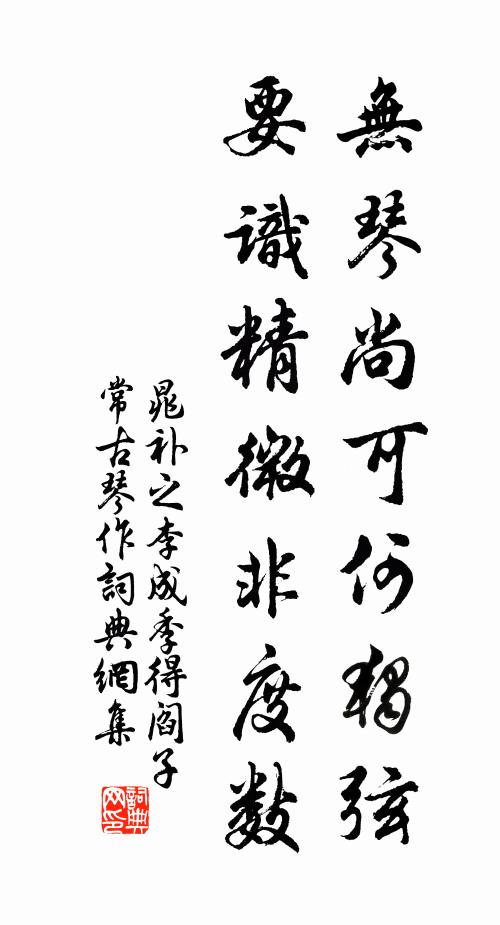 無琴尚可何獨弦
要識精微非度數
晁补之李成季得阎子
常古琴作詞典網集
詞典網印